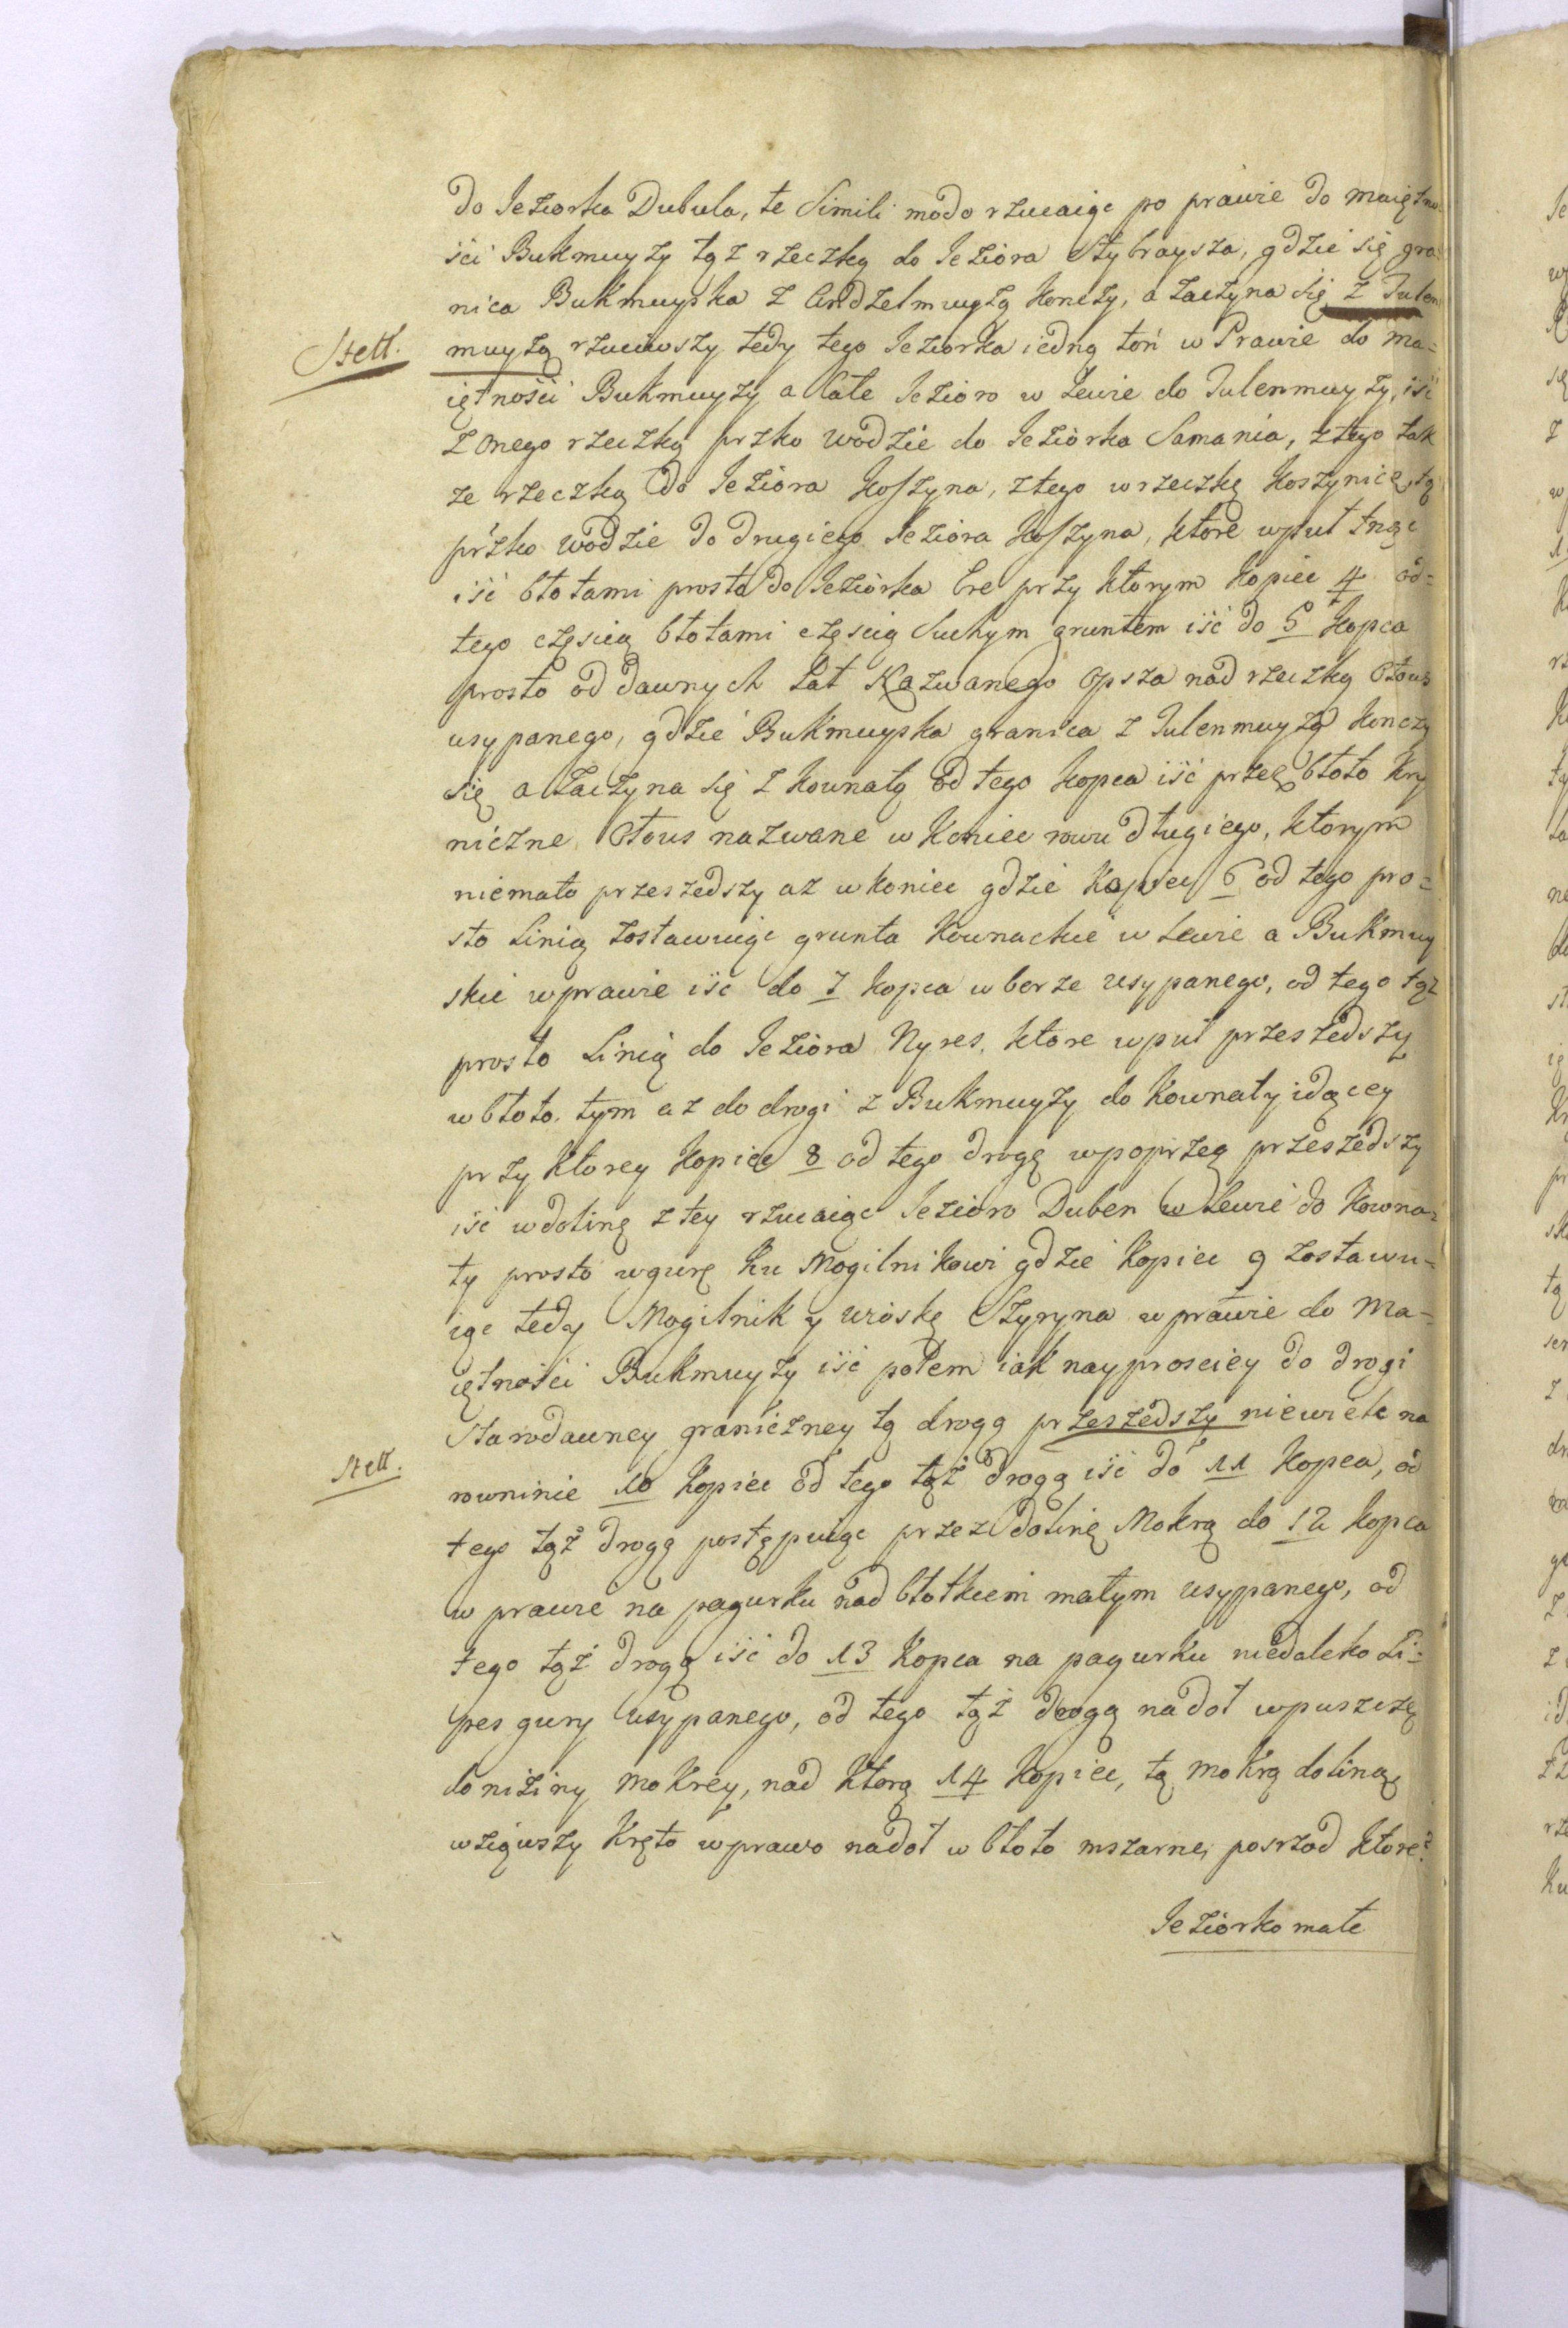 do Jeziorka Dubula, te Simili modo rzucaiąc po prawie do maiętno-
ści Bukmuyży tąż rzeczką do Jeziora Stybraysza, gdzie się gra-
nica Bukmuyska z Andzelmuyżą konczy, a zaczyna się z Julen
Stett.
muyżą rzuciwszy tedy tego Jeziorka iedną toń w Prawie do ma-
iętności Bukmuyży a całe Jezioro w Lewie do Julenmuyży, iść
z onego rzeczką przko wodzie do Jeziorka Samania, z tego tak
ze rzeczką do Jeziora Koszyna, z tego w rzeczkę Koszynicę, tą
przko wodzie do drugiego Jeziora Koszyna, które wpuł tnąc
iść błotami prosto do Jeziorka Ere przy ktorym kopiec 4 od-
tego częscią błotami częscią Suchym gruntem iść do 5 kopca
prosto od dawnych Lat Nazwanego Opsza nad rzeczką Otous
usypanego, gdzie Bukmuyska granica z Julenmuyżą konczy
się a zaczyna się z Kownatą od tego kopca iść przez błoto Kry
niczne Otous nazwane w koniec rowu długiego, ktorym
niemało przeszedszy aż w koniec gdzie kopiec 6 od tego pro-
sto Linią zostawuiąc grunta Kownackie w Lewie a Bukmuy
skie w prawie iść do 7 kopca w borze usypanego, od tego tąż
prosto Linią do Jeziora Nyres, ktore wpuł przeszedszy
w błoto, tym aż do drogi z Bukmuyży do Kownaty idącey
przy ktorey kopiec 8 od tego drogę wpoprzeg przeszedszy
iść w dolinę z tey rzucaiąc Jezioro Duben w Lewie do Kowna-
ty prosto w gurę ku Mogilnikowi gdzie kopiec 9 zostawu-
iąc tedy Mogilnik y wioskę Szyryna w prawie do Ma-
iętności Bukmuyży iść potem iak nayprosciey do drogi
Starodawney graniczney tą drogą przeszedszy niewiele na
Stett.
rowninie 10 kopiec od tego tąż drogą iść do 11 kopca, od
tego tąż drogą postępuiąc przez dolinę Mokrą do 12 kopca
w prawie na pagurku nad błotkiem małym usypanego, od
tego tąż drogą iść do 13 kopca na pagurku niedaleko Li-
pes gury usypanego, od tego tąż drogą na doł w puszczę
do niziny mokrey, nad ktorą 14 kopiec, tą mokrą dolinę
wziąwszy kręto w prawo nadoł w błoto mszarne, posrzod ktore:
Jeziorko małe